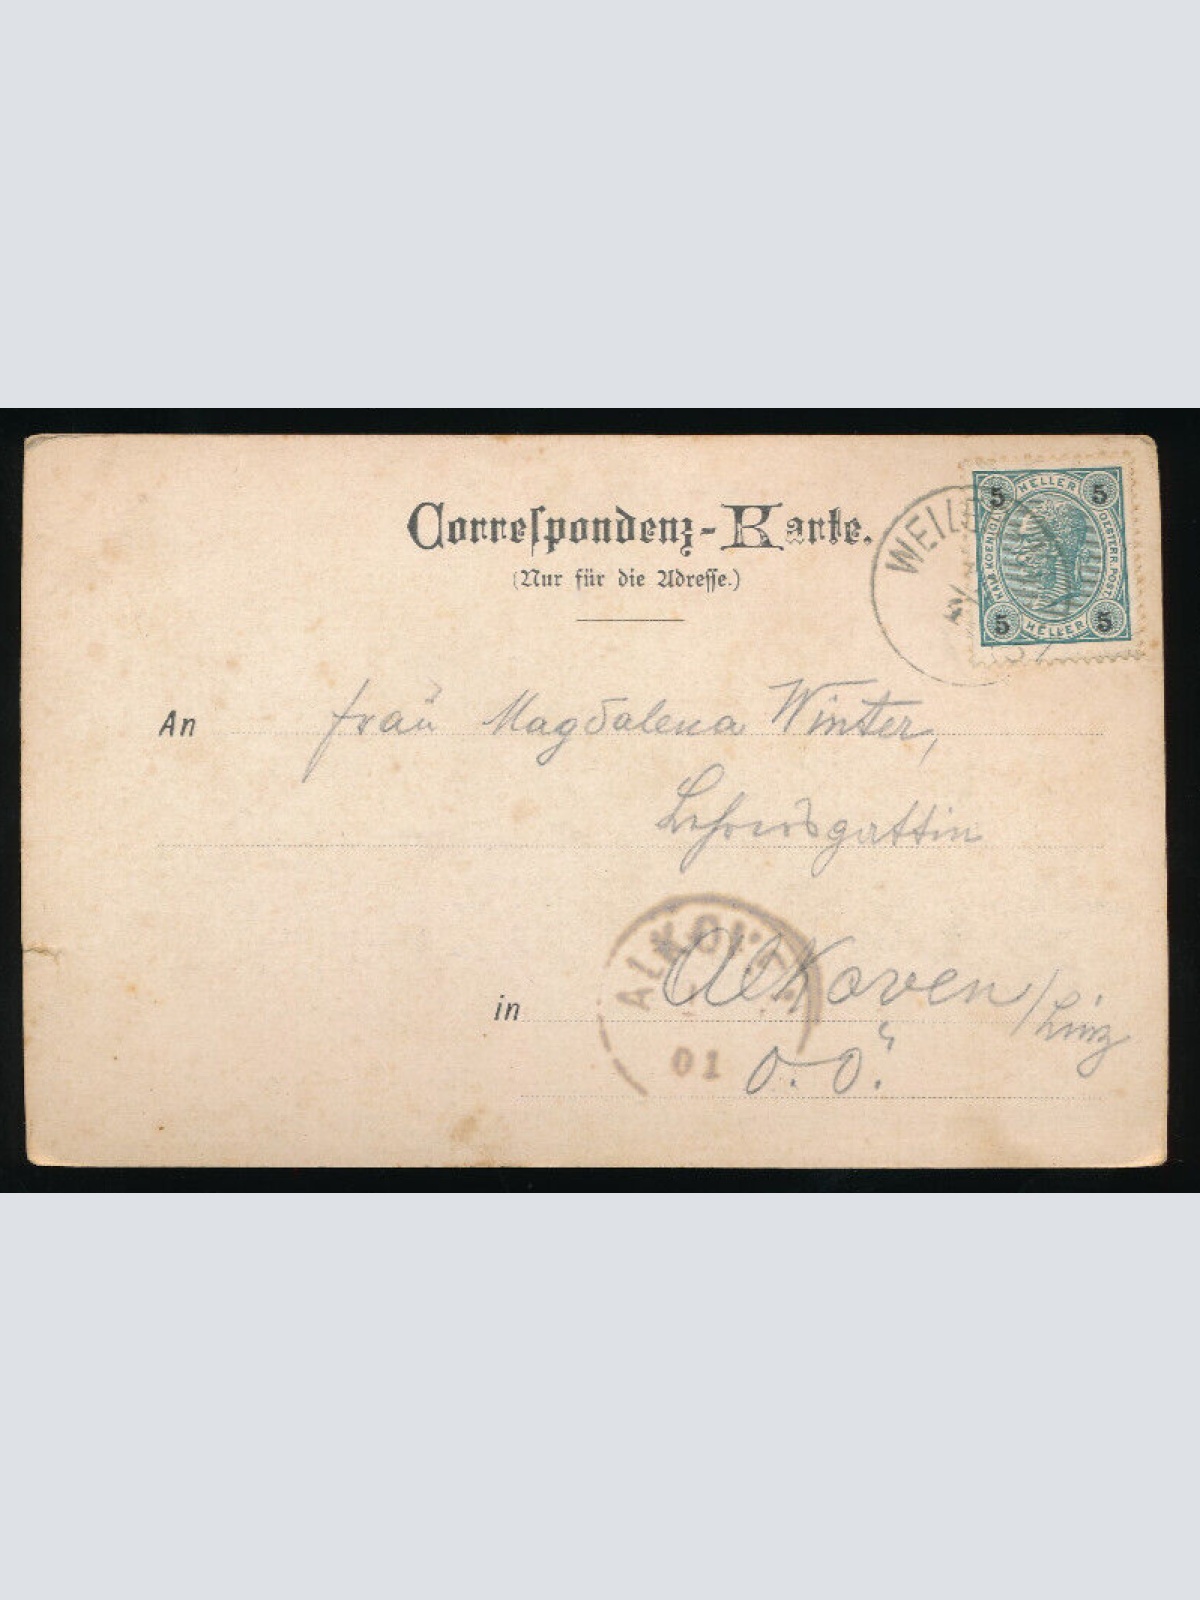 Correspondenz-Karte.
(Nur für die Adresse.)
WEILE
5 HELLER 5
KAIS. KOENIGL. OESTERR. POST
5 HELLER 5
An Frau Magdalena Winter,
Lehrersgattin
ALKOVEN
in Alkoven/Linz
01
O.-Ö.